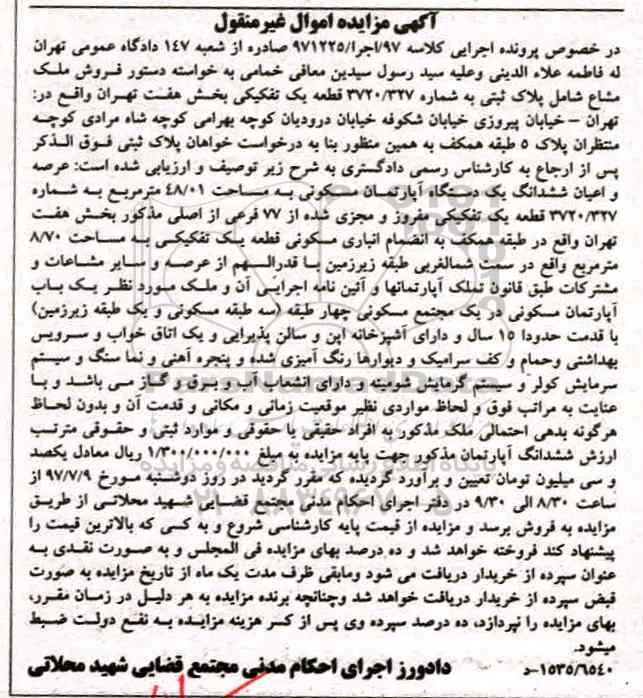 آگهی مزایده اموال غیرمنقول
در خصوص پرونده اجرایی کلاسه ۹۷/اجرا/۹۷۱۲۲۵ صادره از شعبه ۱۴۷ دادگاه عمومی تهران
له فاطمه علاء الدینی وعلیه سید رسول سیدین معافی خمامی به خواسته دستور فروش ملک
مشاع شامل پلاک ثبتی به شماره ۳۷۲۰/۳۲۷ قطعه یک تفکیکی بخش هفت تهران واقع در:
تهران – خیابان پیروزی خیابان شکوفه خیابان درودیان کوچه بهرامی کوچه شاه مرادی کوچه
منتظران پلاک ۵ طبقه همکف به همین منظور بنا به درخواست خواهان پلاک ثبتی فوق الذکر
پس از ارجاع به کارشناس رسمی دادگستری به شرح زیر توصیف و ارزیابی شده است: عرصه
و اعیان ششدانگ یک دستگاه آپارتمان مسکونی به مساحت ۴۸/۰۱ مترمربع به شماره
۳۷۲۰/۳۲۷ قطعه یک تفکیکی مفروز و مجزی شده از ۷۷ فرعی از اصلی مذکور بخش هفت
تهران واقع در طبقه همکف به انضمام انباری مسکونی قطعه یک تفکیکی به مساحت ۸/۷۰
مترمربع واقع در سمت شمالغربی طبقه زیرزمین با قدرالسهم از عرصه و سایر مشاعات و
مشترکات طبق قانون تملک آپارتمانها و آئین نامه اجرایی آن و ملک مورد نظر یک باب
آپارتمان مسکونی در یک مجتمع مسکونی چهار طبقه (سه طبقه مسکونی و یک طبقه زیرزمین)
با قدمت حدودا ۱۵ سال و دارای آشپزخانه اپن و سالن پذیرایی و یک اتاق خواب و سرویس
بهداشتی وحمام و کف سرامیک و دیوارها رنگ آمیزی شده و پنجره آهنی و نما سنگ و سیستم
سرمایش کولر و سیستم گرمایش شومینه و دارای انشعاب آب و برق و گاز می باشد و با
عنایت به مراتب فوق و لحاظ مواردی نظیر موقعیت زمانی و مکانی و قدمت آن و بدون لحاظ
هرگونه بدهی احتمالی ملک مذکور به افراد حقیقی یا حقوقی و موارد ثبتی و حقوقی مترتب
ارزش ششدانگ آپارتمان مذکور جهت پایه مزایده به مبلغ ۱/۳۰۰/۰۰۰/۰۰۰ ریال معادل یکصد
و سی میلیون تومان تعیین و برآورد گردیده که مقرر گردید در روز دوشنبه مورخ ۹۷/۷/۹ از
ساعت ۸/۳۰ الی ۹/۳۰ در دفتر اجرای احکام مدنی مجتمع قضایی شهید محلاتی از طریق
مزایده به فروش برسد و مزایده از قیمت پایه کارشناسی شروع و به کسی که بالاترین قیمت را
پیشنهاد کند فروخته خواهد شد و ده درصد بهای مزایده فی المجلس و به صورت نقدی به
عنوان سپرده از خریدار دریافت می شود ومابقی ظرف مدت یک ماه از تاریخ مزایده به صورت
قبض سپرده از خریدار دریافت خواهد شد وچنانچه برنده مزایده به هر دلیل در زمان مقرر،
بهای مزایده را نپردازد، ده درصد سپرده وی پس از کسر هزینه مزایده به نفع دولت ضبط
میشود.
۱۵۳۵/۶۵۴۰–د دادورز اجرای احکام مدنی مجتمع قضایی شهید محلاتی